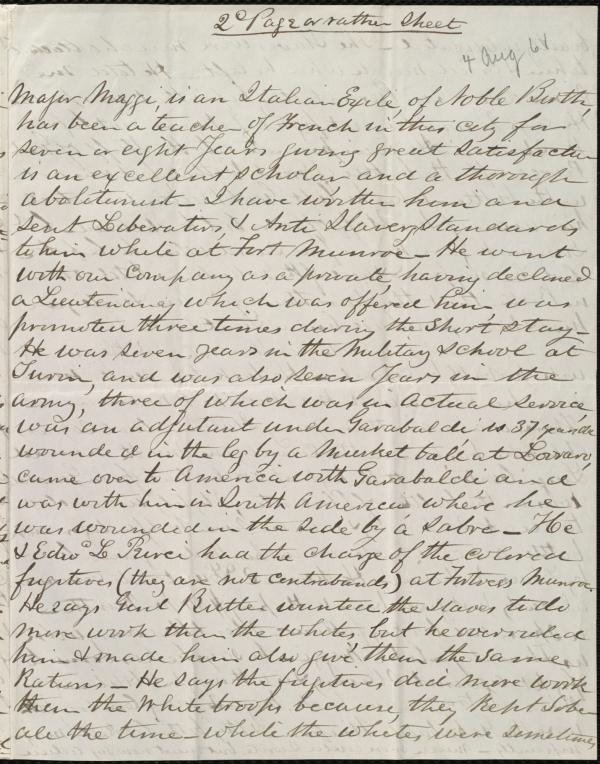 2d Page or rather Sheet
4 Aug 61
Major Maggi, is an Italian Exile, of Noble Birth,
has been a teacher of French in this city for
seven or eight years giving great satisfaction
is an excellent scholar and a thorough
abolitionist - I have written him and
sent Liberators, & Anti Slavery Standards
to him while at Fort Munroe - He went
with our Company as a private having declined
a Lieutenancy which was offered him, was
promoted three times during the short stay -
He was seven years in the Military School at
Turin, and was also seven years in the
army, three of which was in actual service,
was an adjutant under Garabaldi is 37 years old
wounded in the leg by a Musket ball at
came over to America with Garabaldi and
was with him in South America where he
was wounded in the side by a sabre - He
& Edwd L Pierce had the charge of the colored
fugitives (they are not contrabands) at Fortress Munroe.
He says Genl Butler wanted the slaves to do
more work than the whites but he overruled
him & made him also give them the same
Rations - He says the fugitives did more work
than the White troops because, they kept sober
all the time - while the whites were sometimes